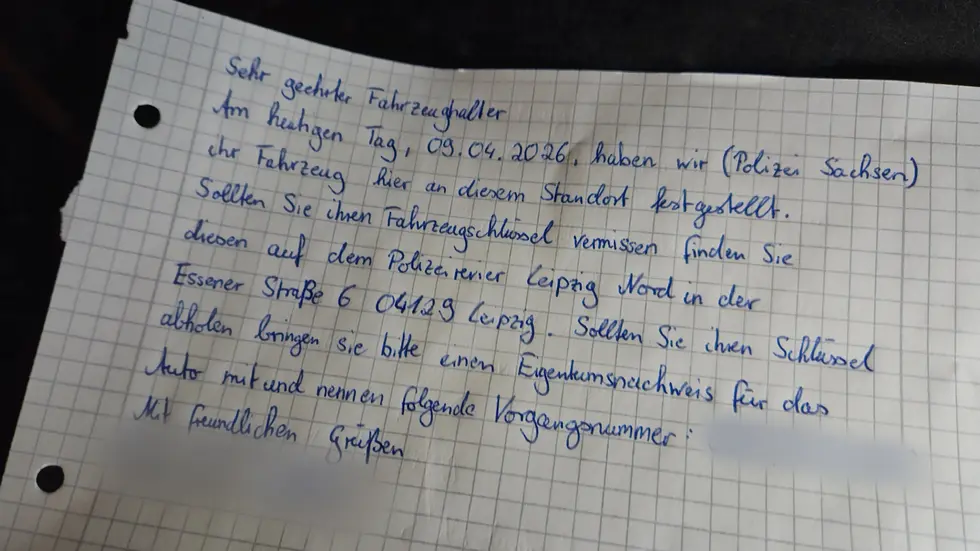 Sehr geehrter Fahrzeughalter
Am heutigen Tag, 09.04.2026, haben wir (Polizei Sachsen)
ihr Fahrzeug hier an diesem Standort festgestellt.
Sollten Sie ihren Fahrzeugschlüssel vermissen finden Sie
diesen auf dem Polizeirevier Leipzig Nord in der
Essener Straße 6 04129 Leipzig. Sollten Sie ihren Schlüssel
abholen bringen sie bitte einen Eigentumsnachweis für das
Auto mit und nennen folgende Vorgangsnummer:
Mit freundlichen Grüßen